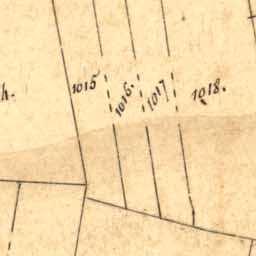 h.
1015
1016.
1017
1018.